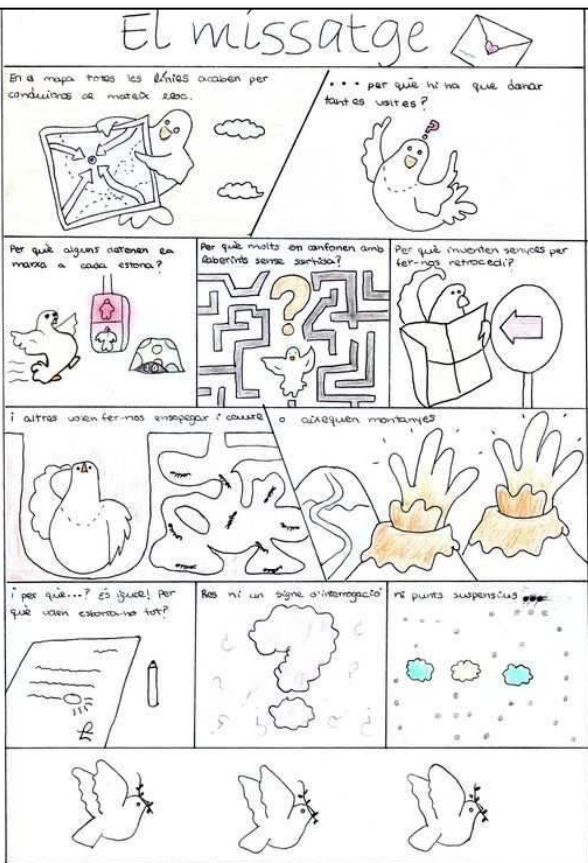 El missatge
En el mapa totes les línies acaben per
conduir-nos al mateix lloc.
... per què hi ha que donar
tantes voltes?
Per què alguns detenen la
marxa a cada estona?
Per què molts en confonen amb
laberints sense sortida?
Per què inventen senyals per
fer-nos retrocedir?
i altres volen fer-nos ensopegar i caure
o aixequen montanyes
i per què...? És igual! Per
què volen esborrar-ho tot?
Res ni un signe d'interrogació
ni punts suspensius